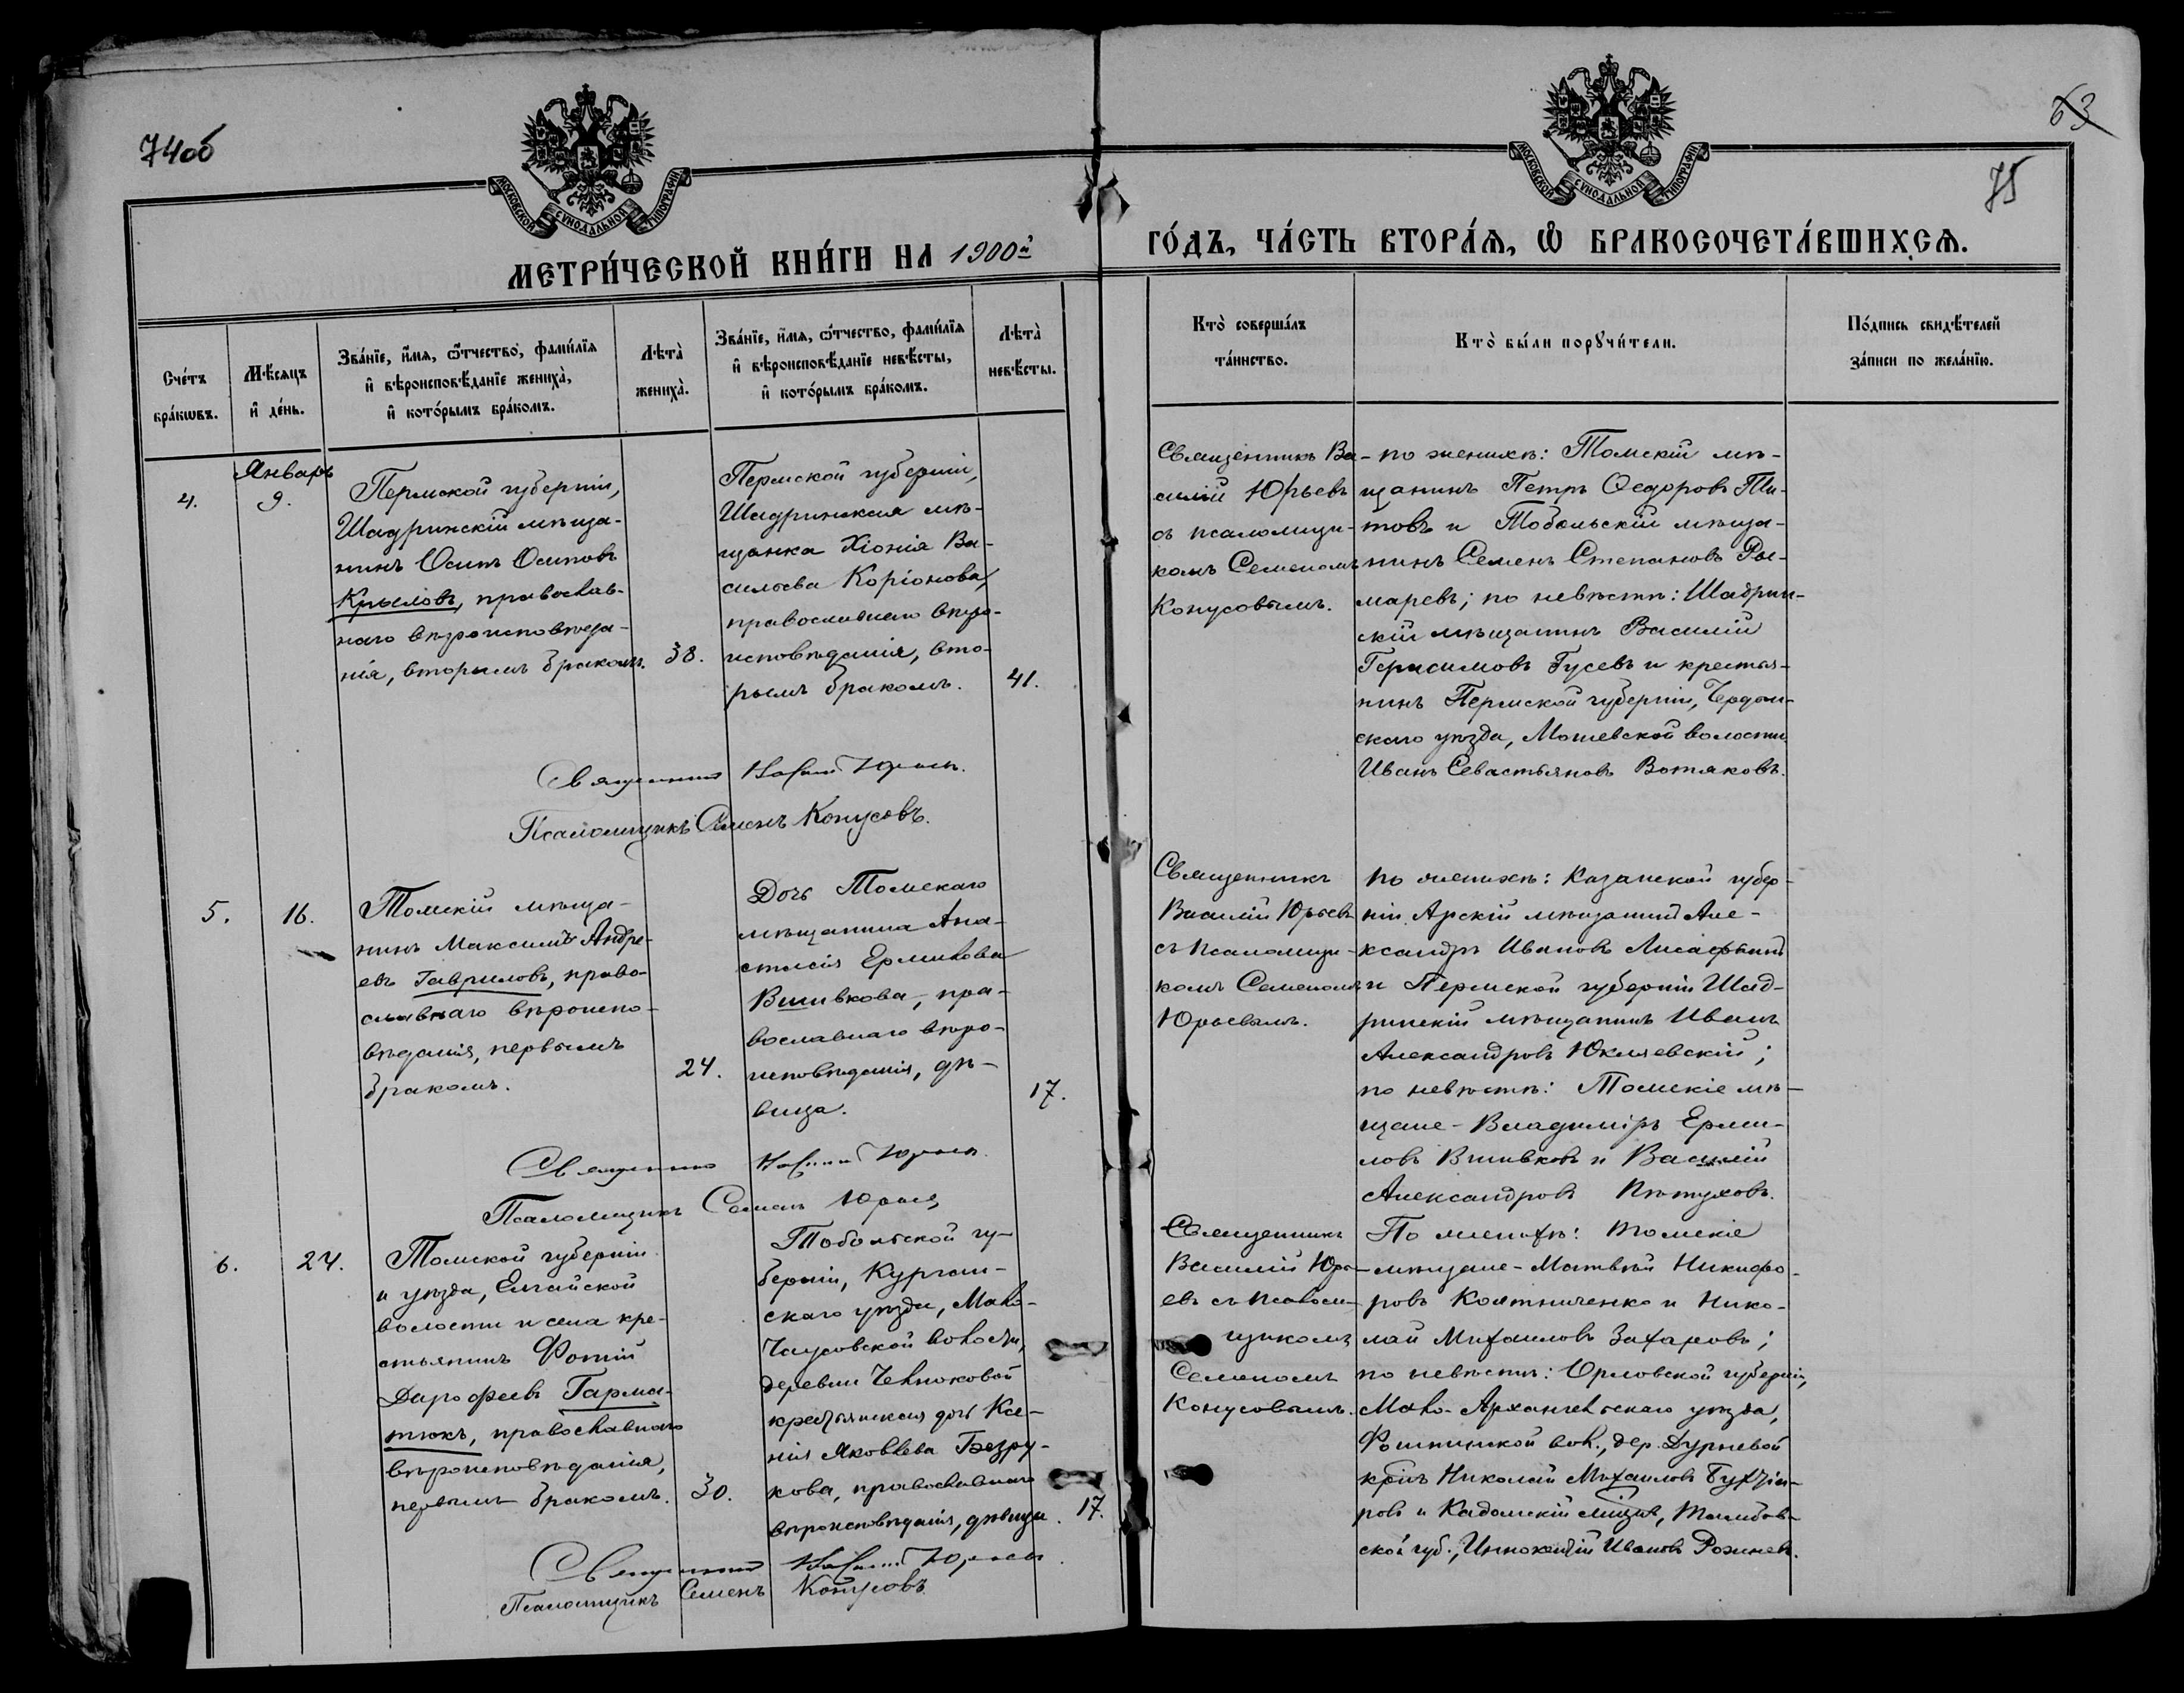 74об
63
75
МОСКОВСКОЙ СУНОДАЛЬНОЙ ТИПОГРАФІИ
МОСКОВСКОЙ СУНОДАЛЬНОЙ ТИПОГРАФІИ
МЕТРИ́ЧЕСКОЙ КНИ́ГИ НА 1900й
ГО́ДЪ, ЧА́СТЬ ВТОРА́Ѧ, Ѽ БРАКОСОЧЕТА́ВШИХСѦ.
Сче́тъ
бра́кѡвъ.
Мѣ́сяцъ
и҆ де́нь.
Зва́нїе, и҆́мя, ѻ҆́тчество, фами́лїя
и҆ вѣроисповѣ́данїе жениха̀,
и҆ кото́рымъ бра́комъ.
Лѣта̀
жениха̀.
Зва́нїе, и҆́мя, ѻ҆́тчество, фами́лїя
и҆ вѣроисповѣ́данїе невѣ́сты,
и҆ кото́рымъ бра́комъ.
Лѣта̀
невѣ́сты.
Кто̀ соверша́лъ
та́инство.
Кто̀ бы́ли порꙋчи́тели.
По́дпись свидѣ́телей
за́писи по жела́нїю.
4.
Январь
9.
Пермской губерніи,
Шадринскій мѣща-
нинъ Осипъ Осиповъ
Крыловъ, православ-
наго вѣроисповѣда-
нія, вторымъ бракомъ.
38.
Пермской губерніи,
Шадринская мѣ-
щанка Хіонія Ва-
сильева Коріонова,
православнаго вѣро-
исповѣданія, вто-
рымъ бракомъ.
41.
Священникъ Ва-
силій Юрьевъ
съ псаломщи-
комъ Семеномъ
Конусовымъ.
по женихѣ: Томскій мѣ-
щанинъ Петръ Ѳедоровъ Ти-
товъ и Тобольскій мѣща-
нинъ Семенъ Степановъ Ры-
маревъ; по невѣстѣ: Шадрин-
скій мѣщанинъ Василій
Герасимовъ Гусевъ и крестья-
нинъ Пермской губерніи, Чердын-
скаго уѣзда, Мошевской волости
Иванъ Севастьяновъ Вотяковъ.
Священникъ Василій Юрьевъ.
Псаломщикъ Семенъ Конусовъ.
5.
16.
Томскій мѣща-
нинъ Максимъ Андре-
евъ Гавриловъ, право-
славнаго вѣроиспо-
вѣданія, первымъ
бракомъ.
24.
Дочь Томскаго
мѣщанина Ана-
стасія Ермилова
Вшивкова, пра-
вославнаго вѣро-
исповѣданія, дѣ-
вица.
17.
Священникъ
Василій Юрьевъ
съ псаломщи-
комъ Семеномъ
Юрьевымъ.
по женихѣ: Казанской губер-
ніи Арскій мѣщанинъ Але-
ксандръ Ивановъ
и Пермской губерніи Шад-
ринскій мѣщанинъ Иванъ
Александровъ Юкляевскій;
по невѣстѣ: Томскіе мѣ-
щане - Владиміръ Ерми-
ловъ Вшивковъ и Василій
Александровъ Пѣтуховъ.
Священникъ Василій Юрьевъ.
Псаломщикъ Семенъ Юрьевъ
6.
24.
Томской губерніи
и уѣзда, Елгайской
волости и села кре-
стьянинъ Фотій
Дарофеевъ Гарма-
тюкъ, православнаго
вѣроисповѣданія,
первымъ бракомъ.
30.
Тобольской гу-
берніи, Курган-
скаго уѣзда, Мало-
Чаусовской волости,
деревни
крестьянская дочь Ксе-
нія Яковлева Безру-
кова, православнаго
вѣроисповѣданія, дѣвица.
17.
Священникъ
Василій Юрь-
евъ съ псалом-
щикомъ
Семеномъ
Конусовымъ.
По женихѣ: Томскіе
мѣщане - Матвѣй Никифо-
ровъ Колтниченко и Нико-
лай Михаиловъ Захаровъ;
по невѣстѣ: Орловской губерніи,
Мало-Архангельскаго уѣзда,
вол., дер. Дурневой
кр-нъ Николай Михаиловъ
и Кадомскій мѣщ-нъ, Тамбов-
ской губ., Иннокентій Ивановъ
Священникъ Василій Юрьевъ.
Псаломщикъ Семенъ Конусовъ